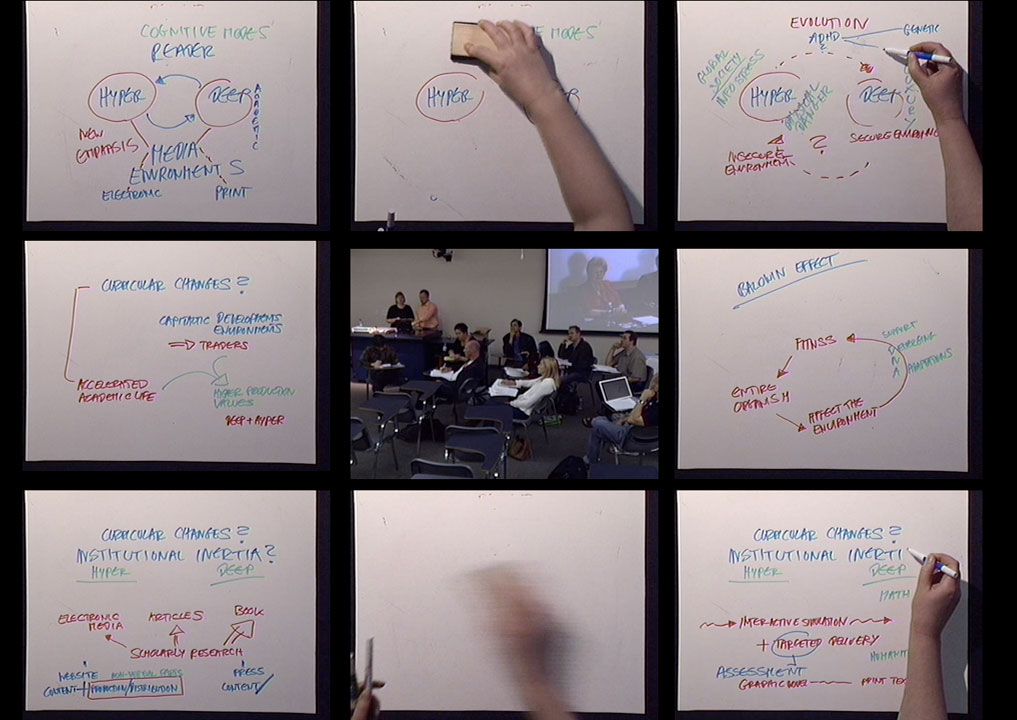 COGNITIVE MODES
READER
HYPER
DEEP
ACADEMIC
NEW
EMPHASIS
MEDIA
ENVIRONMENTS
ELECTRONIC
PRINT
MODES
HYPER
EVOLUTION
ADHD
?
GENETIC
GLOBAL
SOCIETY
INFOSTRESS
HYPER
DANGER
DEEP
SECURE
INSECURE
ENVIRONMENT
?
CURRICULAR CHANGES?
CAPITALISTIC DEVELOPMENTS
ENVIRONMENTS
⇒ TRADERS
ACCELERATED
ACADEMIC LIFE
HIGHER PRODUCTION
VALUES
DEEP + HYPER
BALDWIN EFFECT
FITNSS
SUPPORT
EMERGING
ADAPTATIONS
DNA
ENTIRE
AFFECT THE
ENVIRONMENT
CURRICULAR CHANGES?
INSTITUTIONAL INERTIA?
HYPER
DEEP
ELECTRONIC
MEDIA
ARTICLES
BOOK
SCHOLARLY RESEARCH
WEBSITE
PRESS
CONTENT + PRODUCTION/DISTRIBUTION
CONTENT
CURRICULAR CHANGES?
INSTITUTIONAL INERTI
HYPER
DEEP
MATH
INTERACTIVE SIMULATION
+ TARGETED DELIVERY
HUMANIT
ASSESSMENT
GRAPHIC NOVEL
PRINT TEX